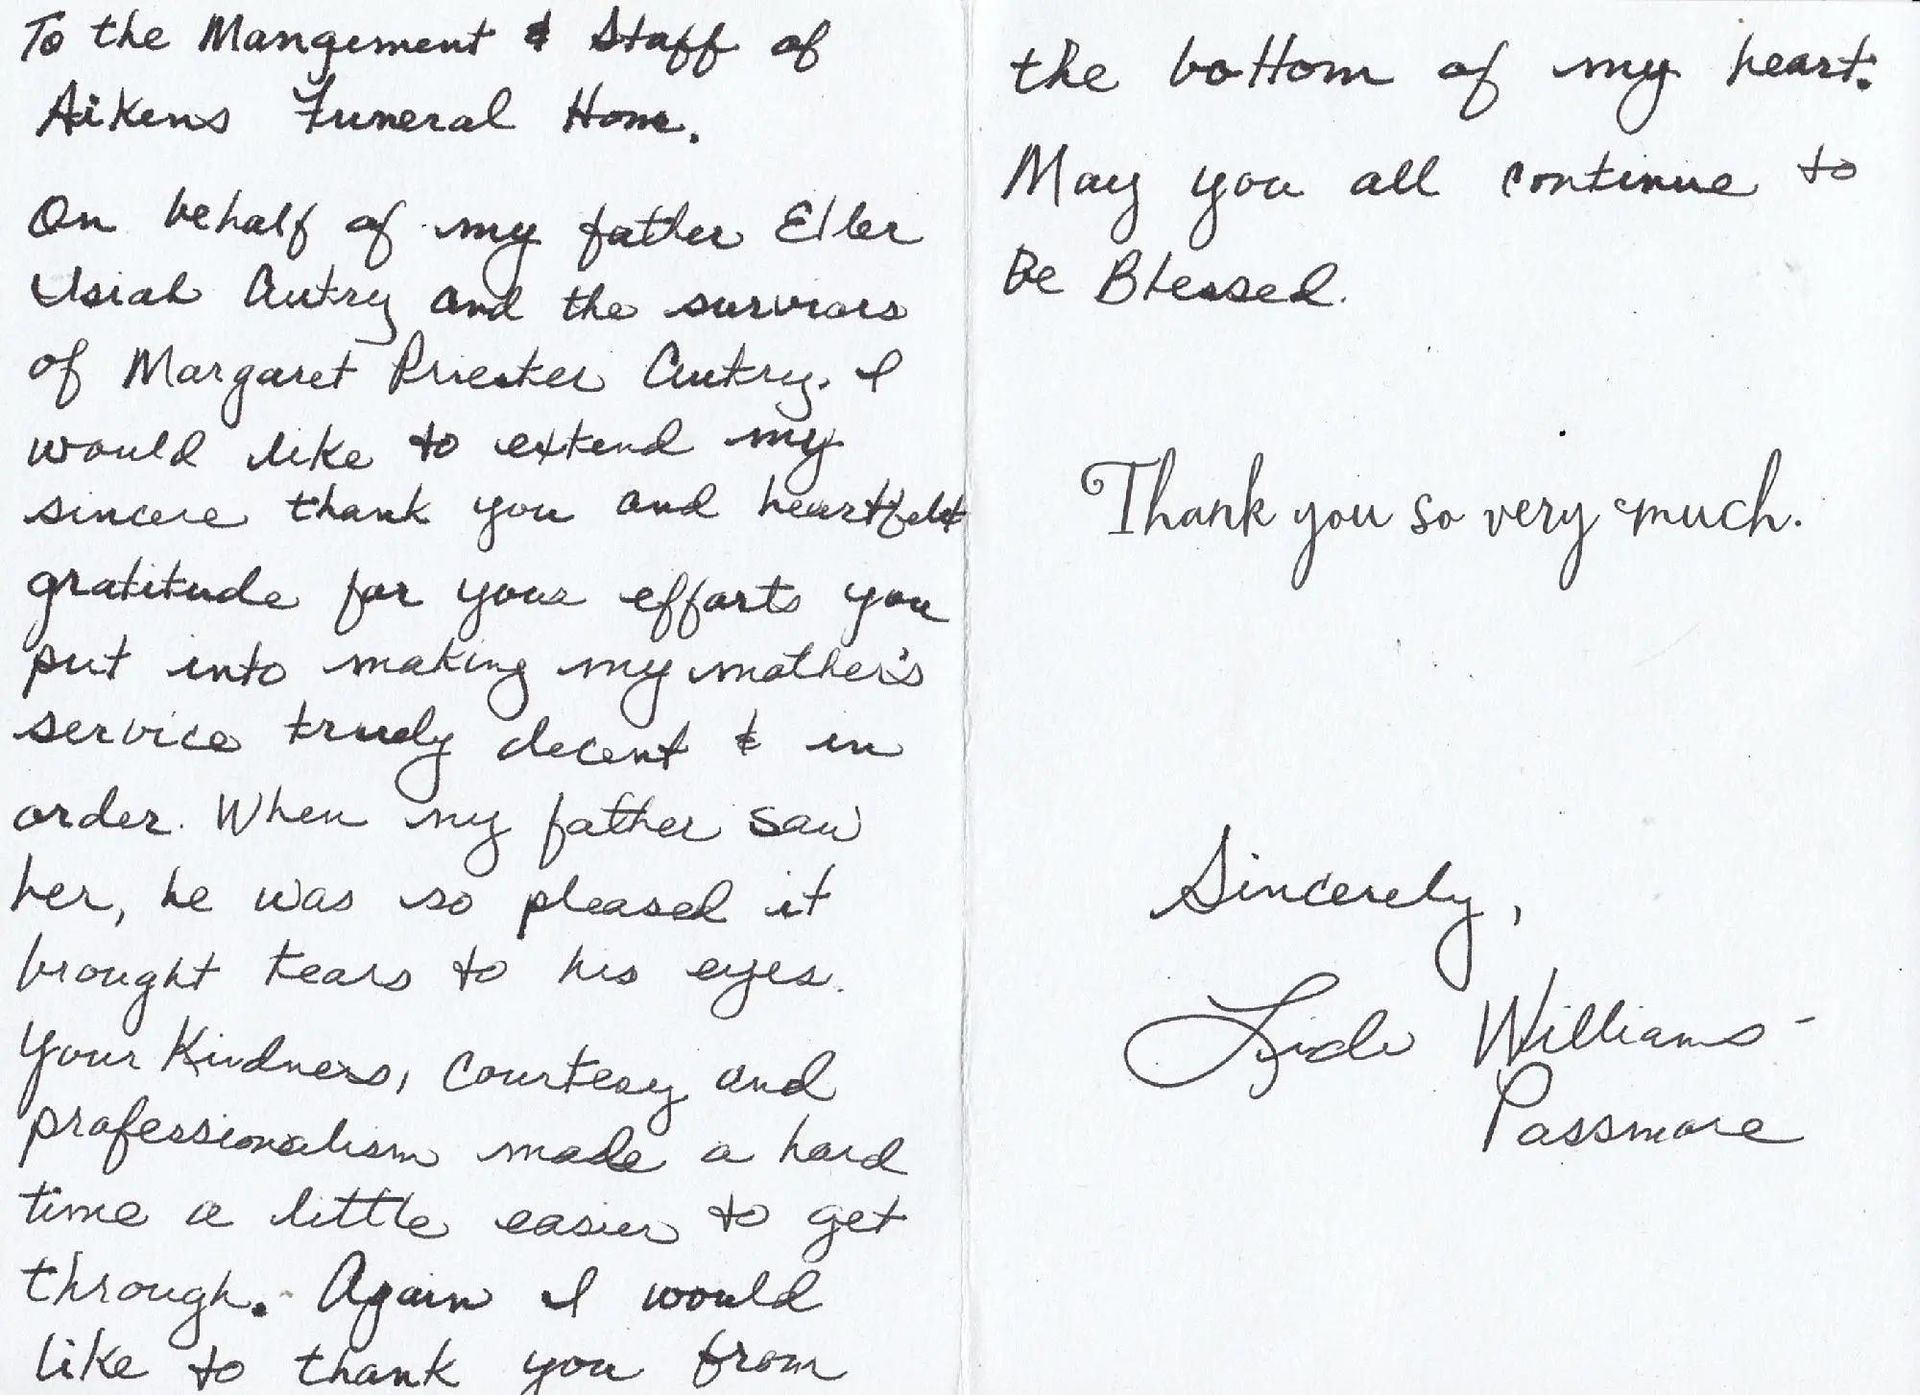 To the Mangement & Staff of
Aikens Funeral Home.
On behalf of my father Elber
Usiah Autry and the surviors
of Margaret Priester Autry. I
would like to extend my
sincere thank you and heartfelt
gratitude for your efforts you
put into making my mother's
service truely decent & in
order. When my father saw
her, he was so pleased it
brought tears to his eyes.
Your Kindness, Courtesy and
professionalism made a hard
time a little easier to get
through. Again I would
like to thank you from
the bottom of my heart.
May you all continue to
Be Blessed.
Thank you so very much.
Sincerely,
Williams-
Passmore